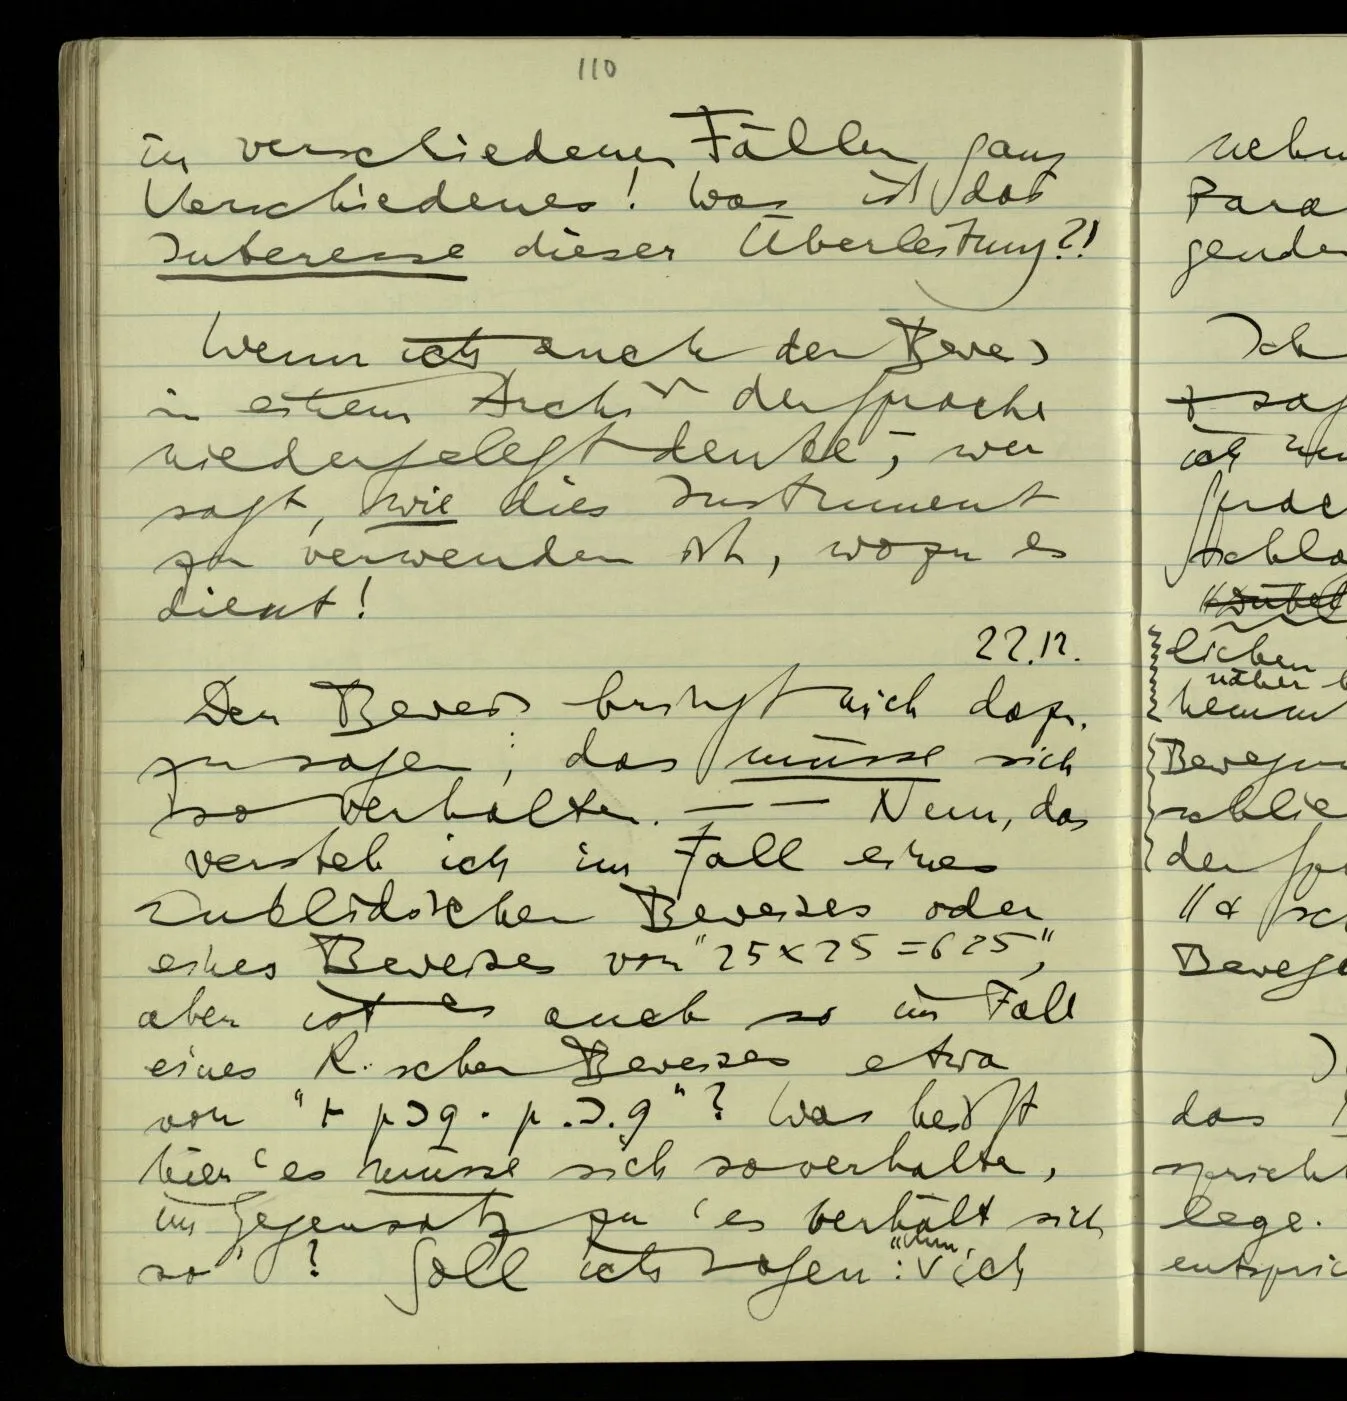 110
in verschiedenen Fällen ganz
Verschiedenes! Was ist das
Interesse dieser Überleitung?!
Wenn ich auch den Beweis
in einem Archiv der Sprache
niedergelegt denke, – wer
sagt, wie dies Instrument
zu verwenden ist, wozu es
dient!
22.12.
Der Beweis bringt mich dazu
zu sagen, das müsse sich
so verhalten. — — Nun, das
versteh ich im Fall eines
Euklidischen Beweises oder
eines Beweises von "25×25=625",
aber ist es auch so im Fall
eines R.schen Beweises etwa
von "⊢ p⊃q . p .⊃. q"? Was heißt
hier 'es müsse sich so verhalten,
im Gegensatz zu 'es verhält sich
so'? Soll ich sagen: "Nun, ich
nehm
Para
gende
Ich
sag
ich
sprac
schla
lichen
näher
Bewegun
schlie
der
Bewege
das
spricht
lege.
entspric